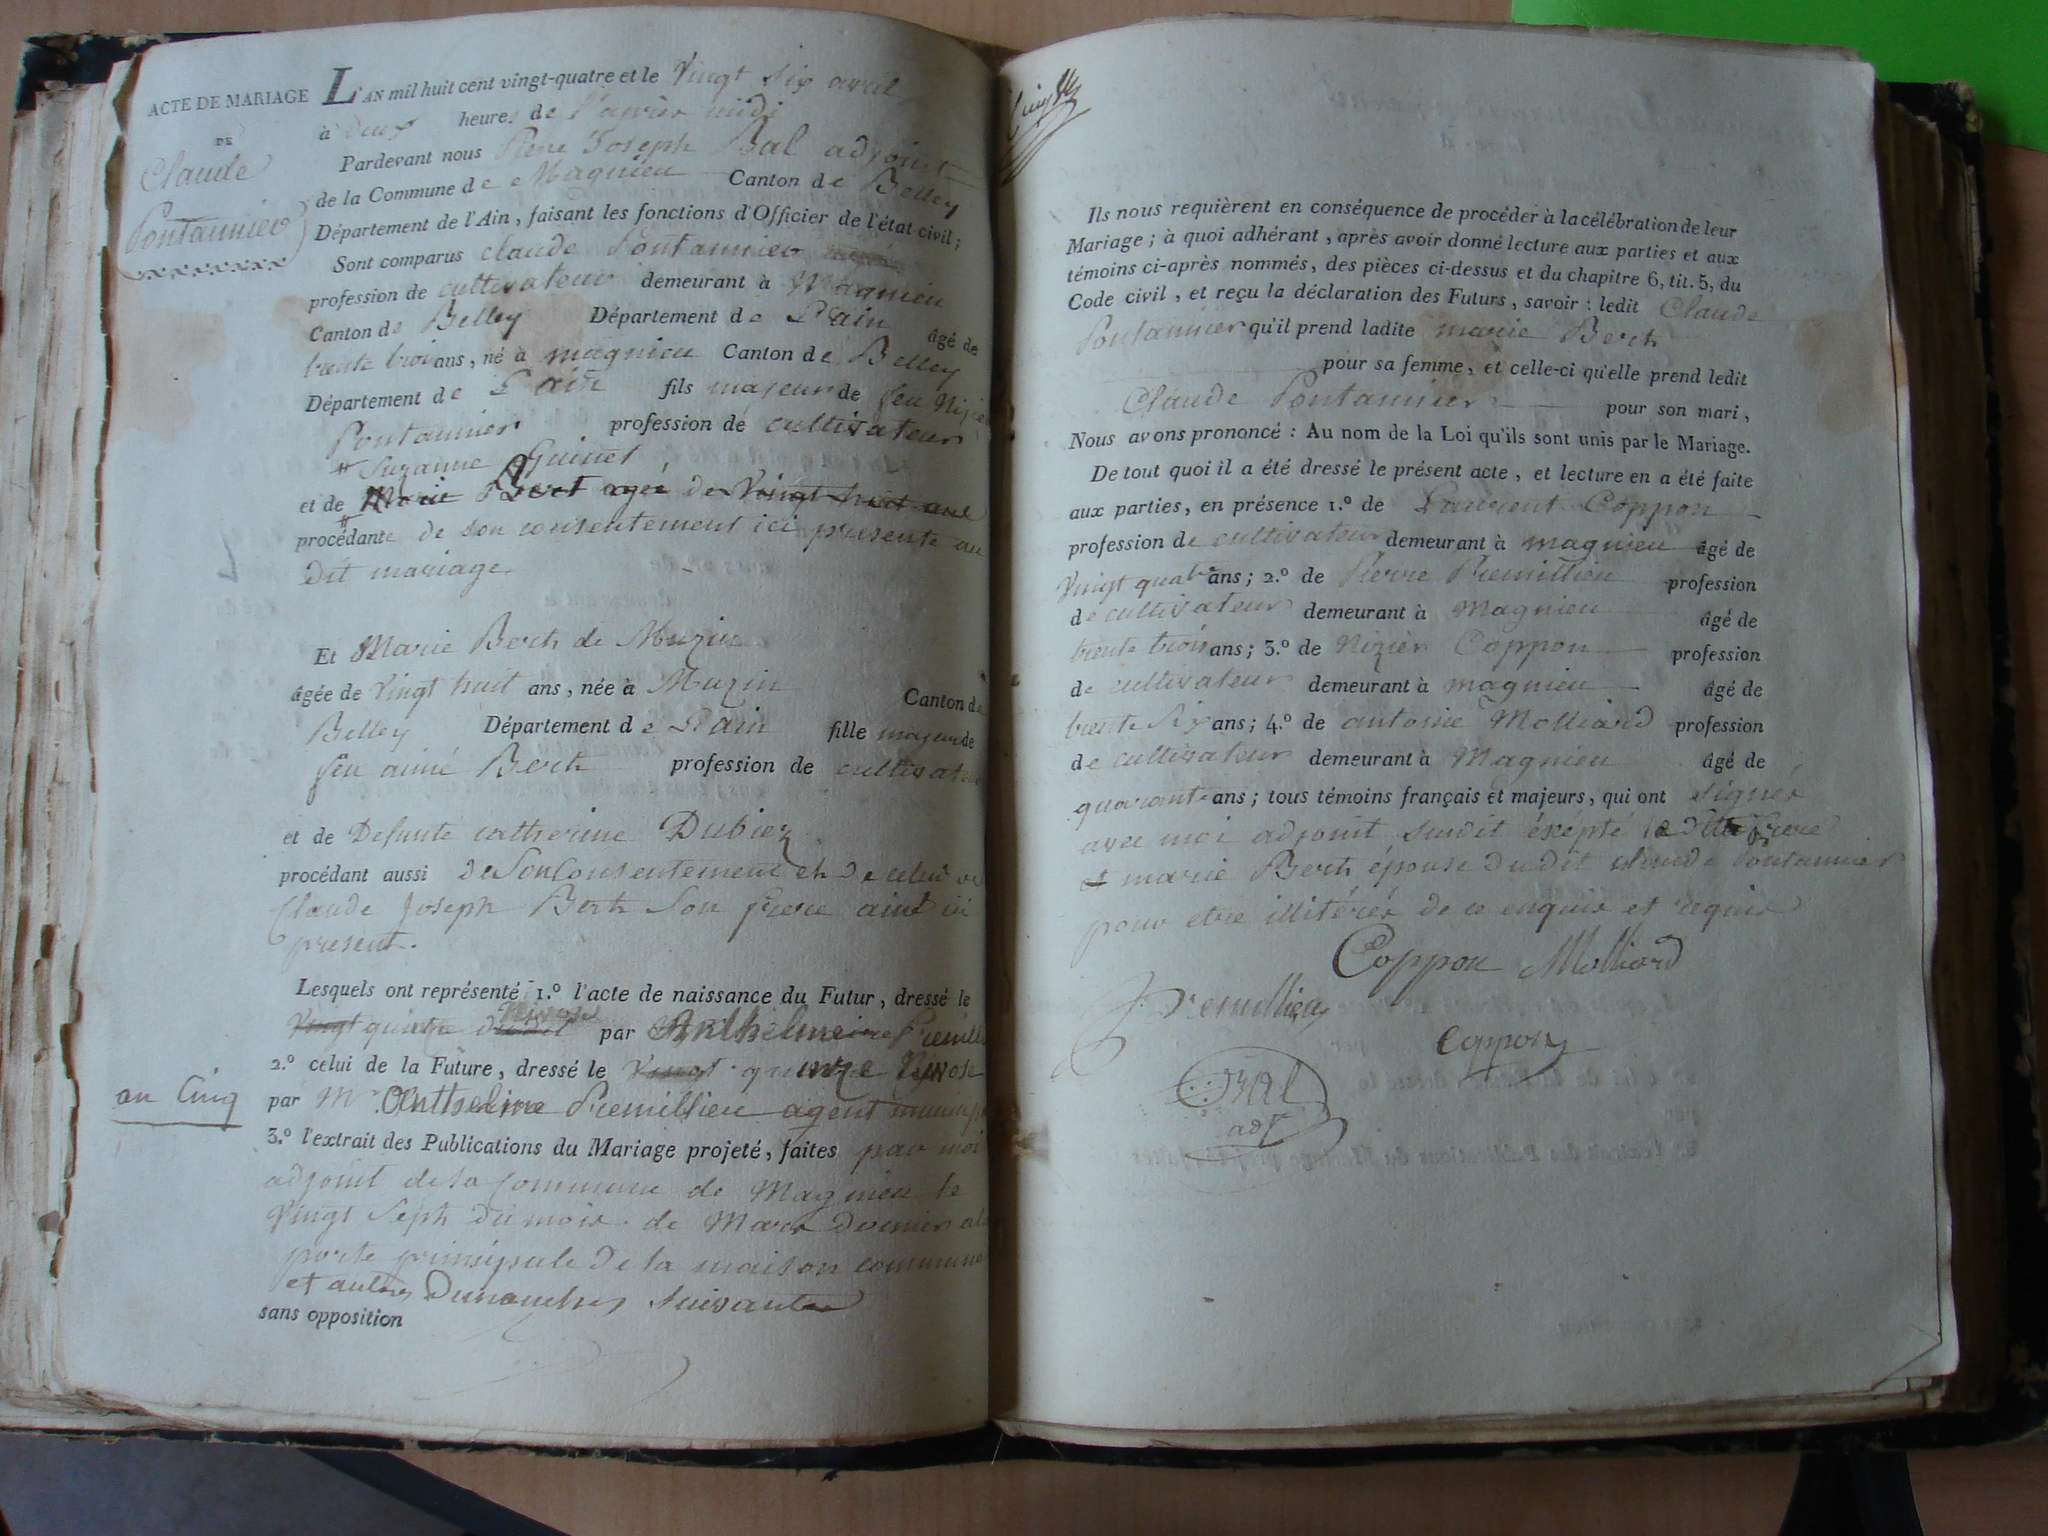 ACTE DE MARIAGE
DE
Claude
Pontannier
L'AN mil huit cent vingt-quatre et le Vingt six avril
à deux heures de l'apriès midi
Pardevant nous Pierre Joseph Bal adjoint
de la Commune de Magnieu Canton de Belley
Département de l'Ain, faisant les fonctions d'Officier de l'état civil;
Sont comparus Claude Pontannier
profession de cultivateur demeurant à Magnieu
Canton de Belley Département de L'ain âgé de
trente trois ans, né à magnieu Canton de Belley
Département de L'ain fils majeur de feu Nizier
Pontannier profession de cultivateur
Suzanne Guinet
et de Marie Bert agée de Vingt huit ans
procédante de son consentement ici presente au
dit mariage
Et Marie Berth de Muzin
âgée de vingt huit ans, née à Muzin Canton de
Belley Département de L'ain fille majeur de
feu aimé Berth profession de cultivateur
et de Defunte catherine Dubiez
procédant aussi de Son Consentement et de celui de
Claude Joseph Berth Son frere ainé ici
present.
Lesquels ont représenté 1.º l'acte de naissance du Futur, dressé le
Vingt par Anthelme
2.º celui de la Future, dressé le Vingt quinze Nivose
an Cinq
par Mr. Anthelme Premillieu agent
3.º l'extrait des Publications du Mariage projeté, faites par moi
adjoint de la Commune de Magnieu le
Vingt Sept du mois de Mars Dernier a la
porte prinsipale de la maison commune
et autres Dimanches suivants
sans opposition
Ils nous requièrent en conséquence de procéder à la célébration de leur
Mariage; à quoi adhérant, après avoir donné lecture aux parties et aux
témoins ci-après nommés, des pièces ci-dessus et du chapitre 6, tit. 5, du
Code civil, et reçu la déclaration des Futurs, savoir: ledit Claude
Pontannier qu'il prend ladite marie Berth
pour sa femme, et celle-ci qu'elle prend ledit
Claude Pontannier pour son mari,
Nous avons prononcé: Au nom de la Loi qu'ils sont unis par le Mariage.
De tout quoi il a été dressé le présent acte, et lecture en a été faite
aux parties, en présence 1.º de Laurent Coppon
profession de cultivateur demeurant à magnieu âgé de
Vingt quatre ans; 2.º de Pierre Premillieu profession
de cultivateur demeurant à Magnieu âgé de
trente trois ans; 3.º de Nizier Coppon profession
de cultivateur demeurant à magnieu âgé de
trente Six ans; 4.º de antoine Molliard profession
de cultivateur demeurant à Magnieu âgé de
quarante ans; tous témoins français et majeurs, qui ont signés
avec moi adjoint susdit éxépté le dit frere
et marie Berth épouse dudit claude Pontannier
pour etre illitérés de ce enquis et requis
Coppon Molliard
Premillieu
Coppon
Bal
adjt